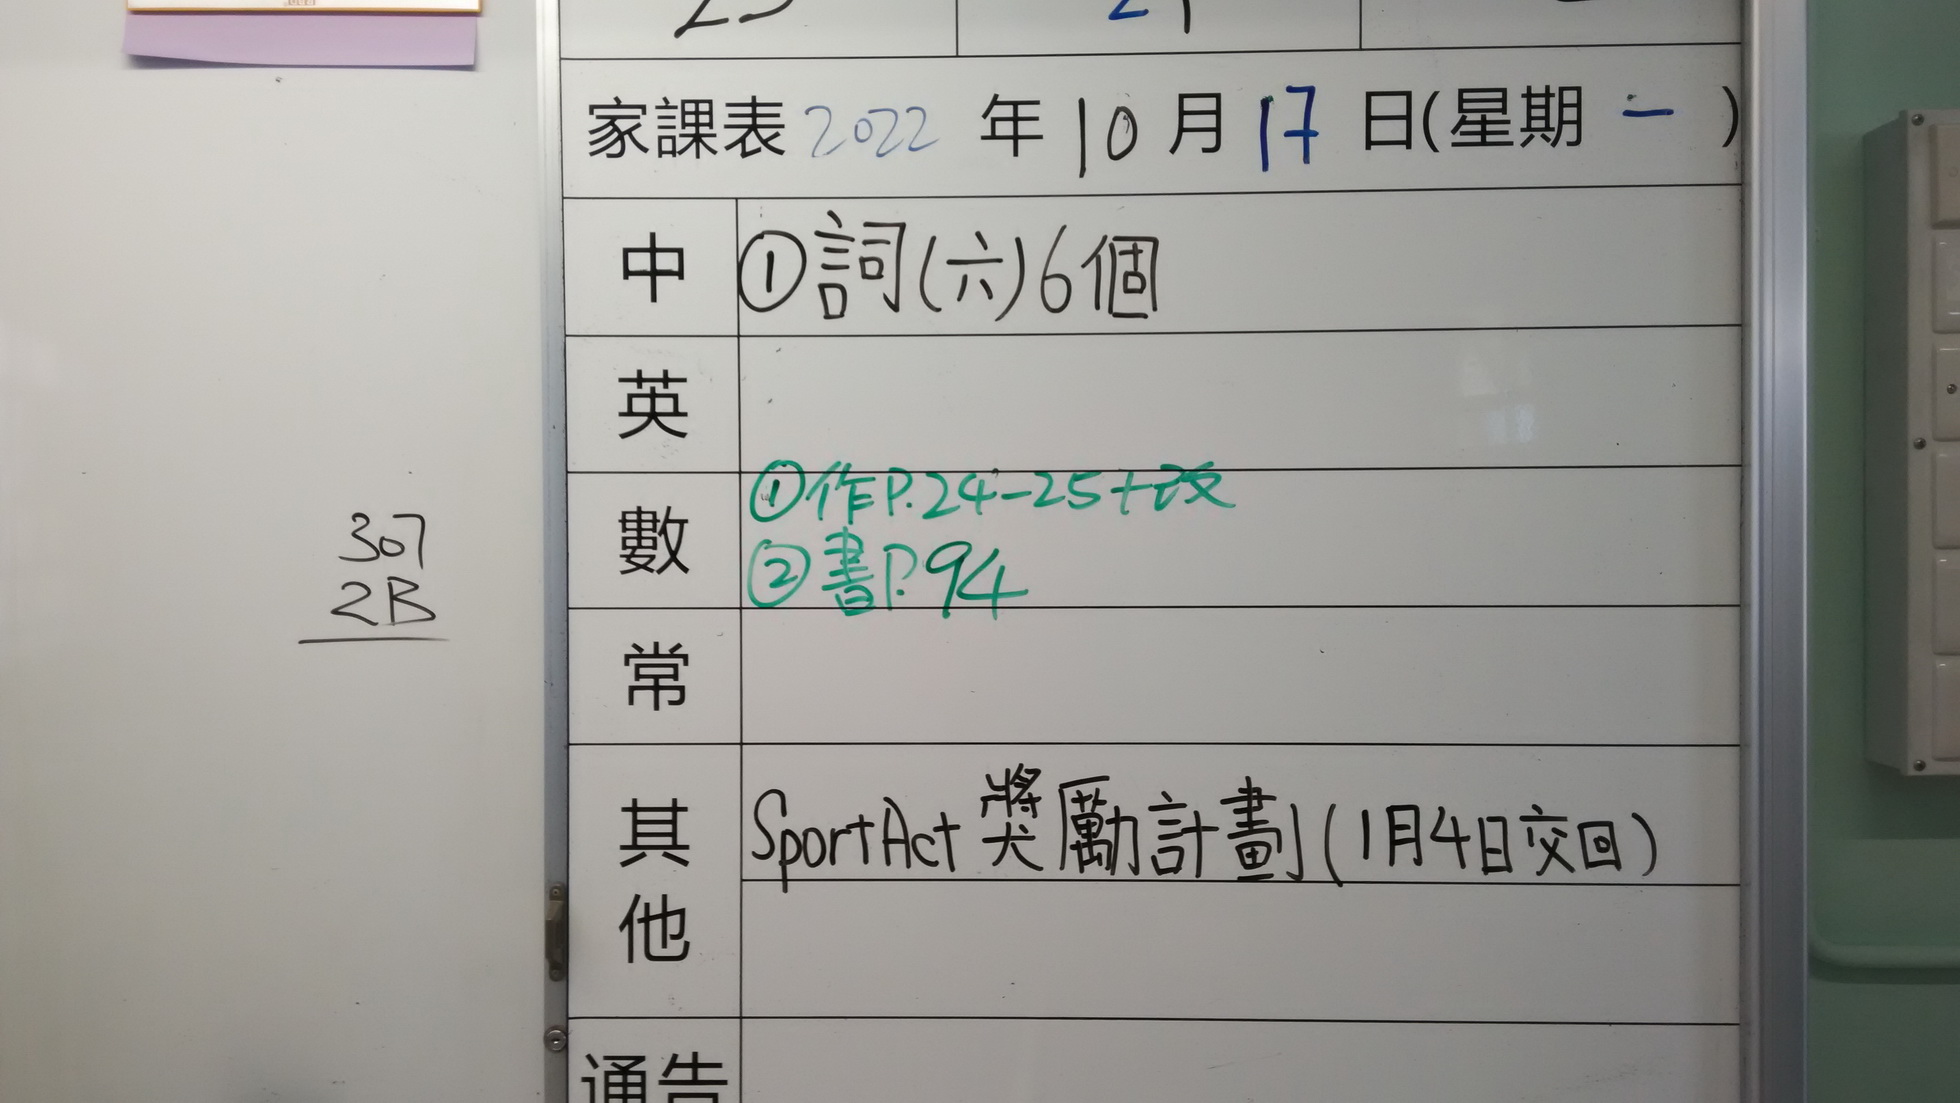 家課表 2022 年 10 月 17 日(星期 一 )
中 ①詞(六)6個
英
數 ①作P.24-25+改
②書P.94
常
307
2B
其他 SportAct 獎勵計劃(1月4日交回)
通告